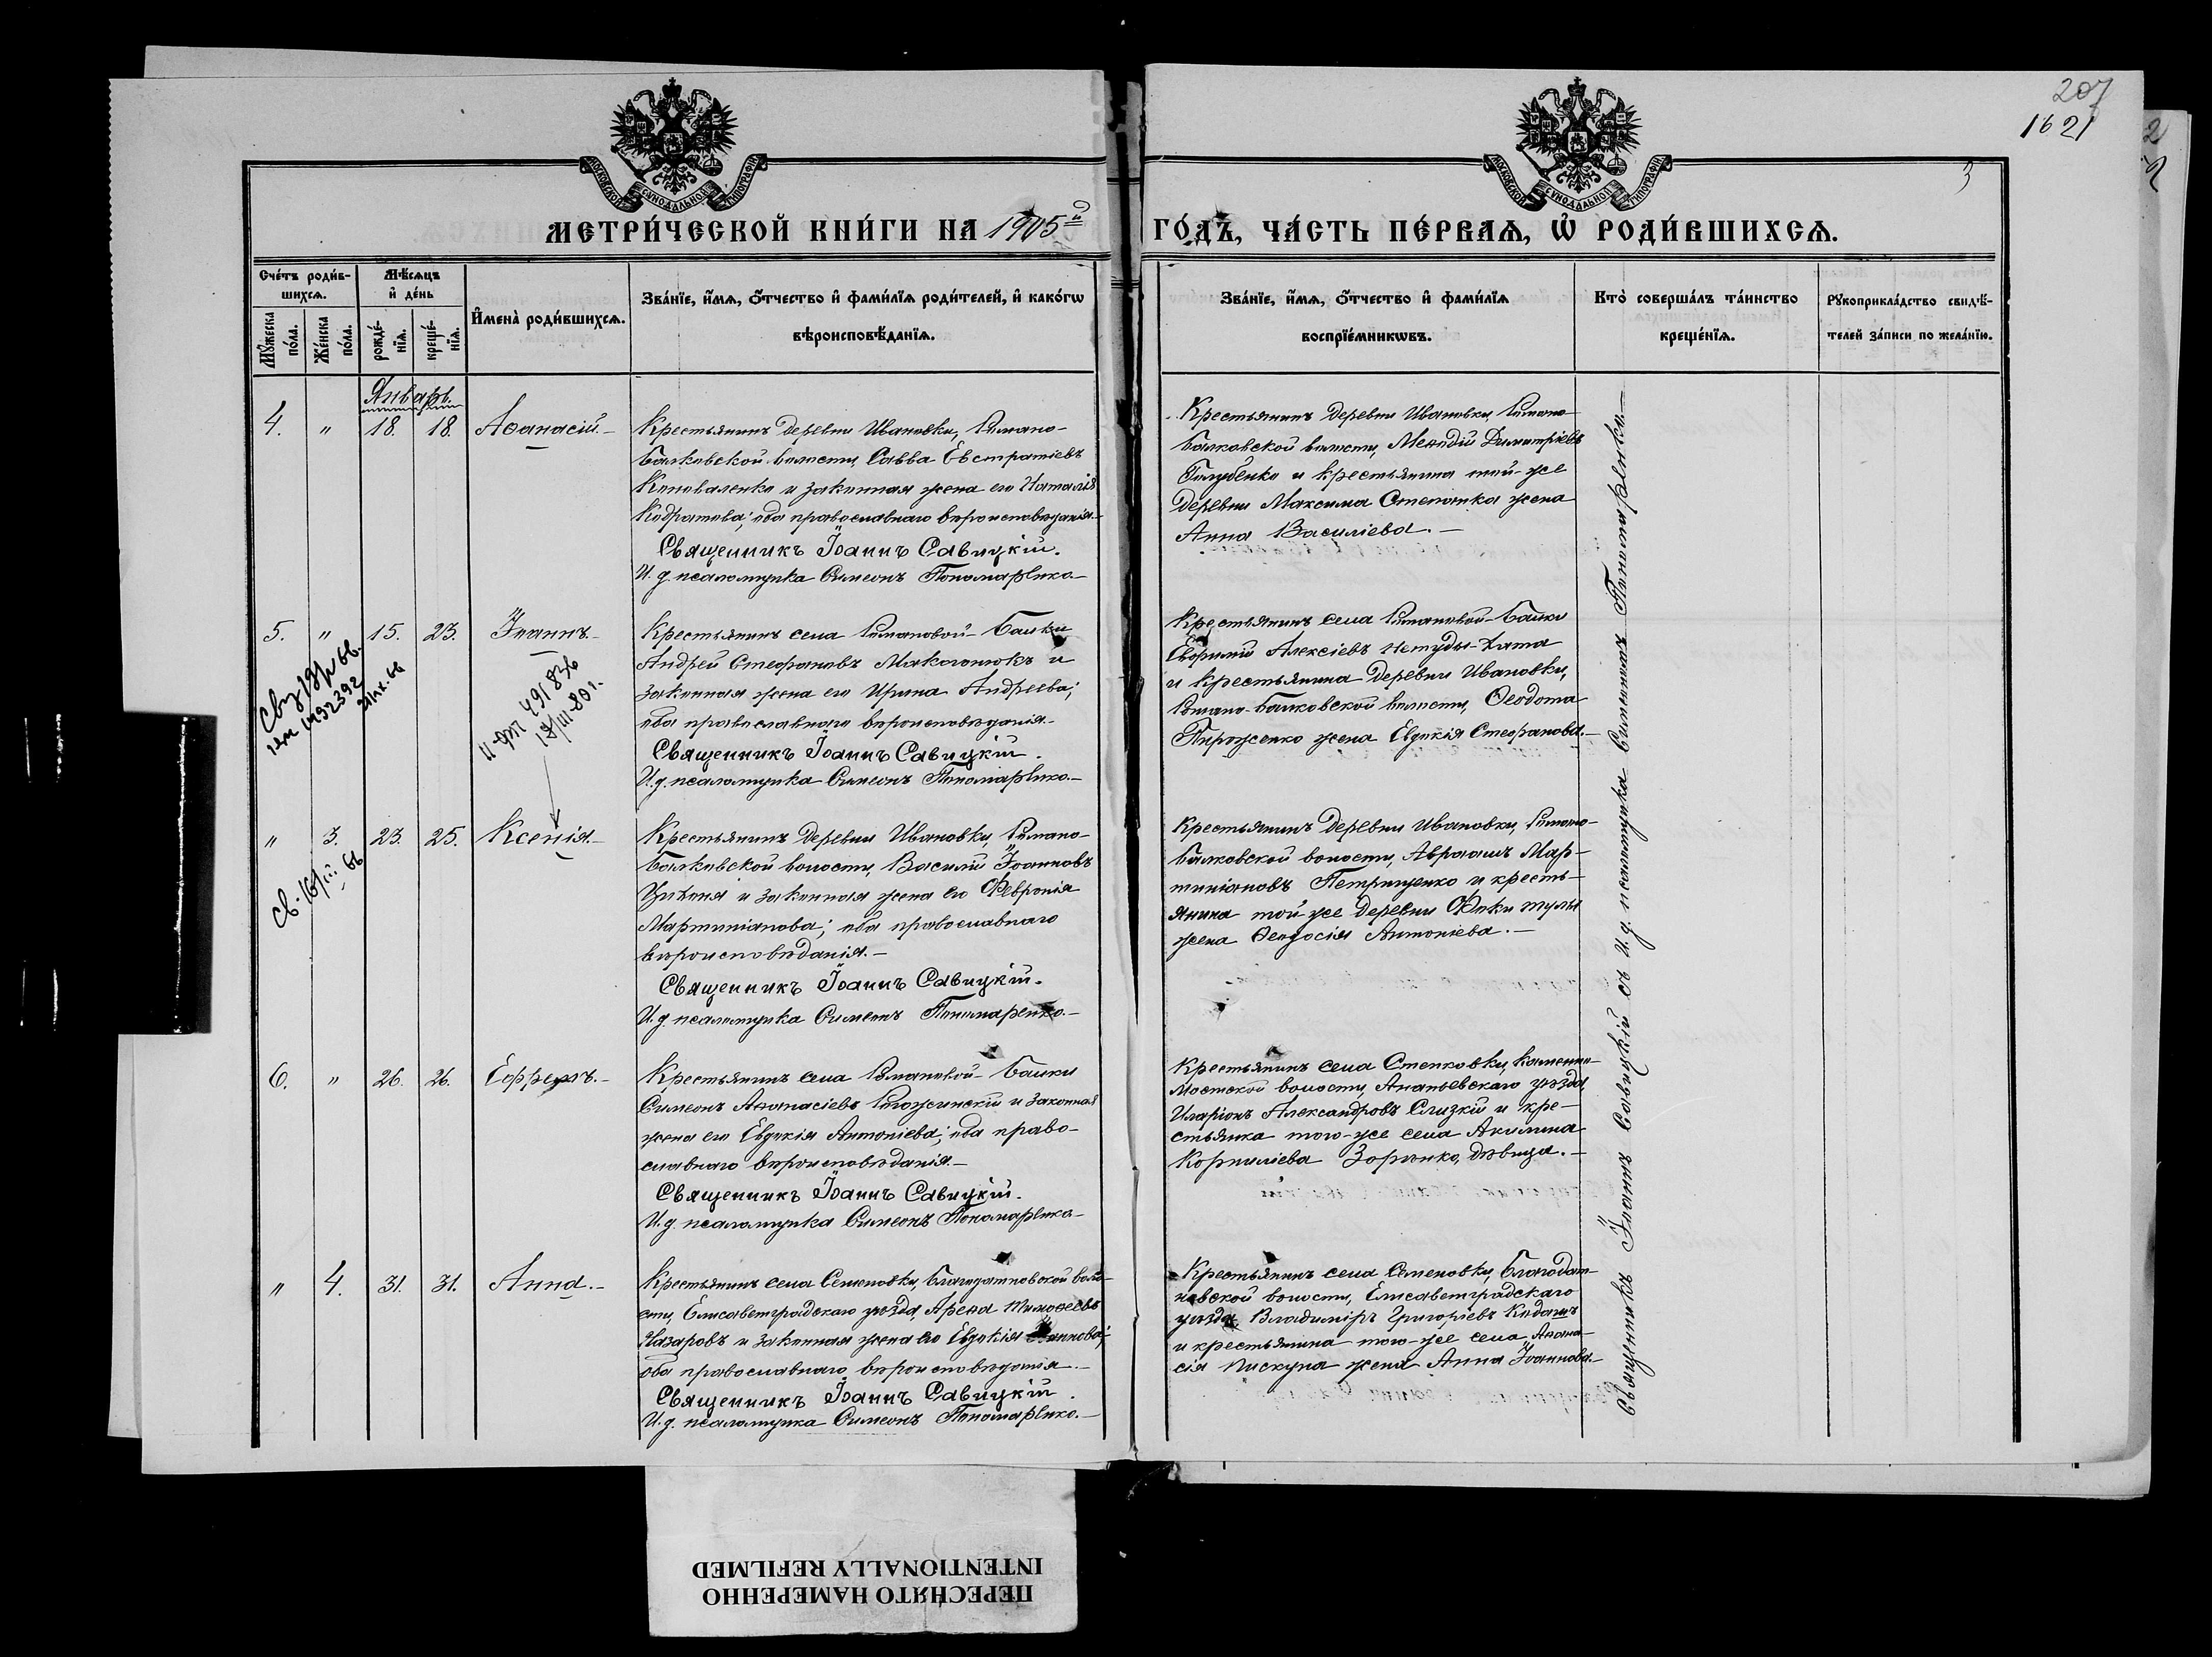 207
1621
3
МОСКОВСКОЙ СѴНОДАЛЬНОЙ ТИПОГРАФІИ
МОСКОВСКОЙ СѴНОДАЛЬНОЙ ТИПОГРАФІИ
МЕТРИ́ЧЕСКОЙ КНИ́ГИ НА 1905й ГО́ДЪ, ЧА́СТЬ ПЕ́РВАѦ, Ѡ҆ РОДИ́ВШИХСѦ.
Сче́тъ роди́в-
шихсѧ.
Мꙋ́жеска по́ла.
Же́нска по́ла.
Мѣ́сѧцъ
и҆ де́нь
рожде́-
нїѧ.
креще́-
нїѧ.
И҆мена̀ роди́вшихсѧ.
Зва́нїе, и҆́мѧ, ѻ҆́тчество и҆ фами́лїѧ роди́телей, и҆ како́гѡ
вѣроисповѣ́данїѧ.
Зва́нїе, и҆́мѧ, ѻ҆́тчество и҆ фами́лїѧ
воспрїе́мникѡвъ.
Кто̀ соверша́лъ та́инство
креще́нїѧ.
Рꙋкоприкла́дство свидѣ́-
телей за́писи по жела́нїю.
Январь.
4. " 18. 18. Аѳанасій.
Крестьянинъ деревни Ивановки, Романо-
Балковской волости, Савва Евстратіевъ
Коноваленко и законная жена его Наталія
Кодратова; оба православнаго вѣроисповѣданія.
Священникъ Іоаннъ Савицкій.
И. д. псаломщика Симеонъ Пономаренко.
Крестьянинъ деревни Ивановки Романо-
Балковской волости, Меѳодій Димитріевъ
Голубенко и крестьянина той-же
деревни Максима Степанка жена
Анна Василіева.
5. " 15. 23. Іоаннъ.
Крестьянинъ села Романовой-Балки
Андрей Стефановъ Макогонюкъ и
законная жена его Ирина Андреева;
оба православнаго вѣроисповѣданія.
Священникъ Іоаннъ Савицкій.
И. д. псаломщика Симеонъ Пономаренко.
Крестьянинъ села Романовой-Балки
Алексіевъ Нетуды-Хата
и крестьянина деревни Ивановки,
Романо-Балковской волости, Ѳеодота
Пироженко жена Евдокія Стефанова.
" 3. 23. 25. Ксенія.
Крестьянинъ деревни Ивановки, Романо-
Балковской волости, Василій Іоанновъ
и законная жена его Февронія
Мартиніанова; оба православнаго
вѣроисповѣданія.
Священникъ Іоаннъ Савицкій.
И. д. псаломщика Симеонъ Пономаренко.
Крестьянинъ деревни Ивановки, Романо-
Балковской волости, Авраамъ Мар-
тиніановъ Петриченко и кресть-
янина той же деревни Фоки Тулы
жена Ѳеодосія Антоніева.
6. " 26. 26. Ефремъ.
Крестьянинъ села Романовой-Балки
Симеонъ Аѳанасіевъ и законная
жена его Евдокія Антоніева; оба право-
славнаго вѣроисповѣданія.
Священникъ Іоаннъ Савицкій.
И. д. псаломщика Симеонъ Пономаренко
Крестьянинъ села Степковки, Каменно-
Мостской волости, Ананьевскаго уѣзда,
Иларіонъ Александровъ Слизкій и кре-
стьянка того-же села Акилина
Корниліева дѣвица.
" 4. 31. 31. Анна.
Крестьянинъ села Семеновки, Благодатновской воло-
сти, Елисаветградскаго уѣзда, Тимоѳеевъ
Назаровъ и законная жена его Евдокія
оба православнаго вѣроисповѣданія.
Священникъ Іоаннъ Савицкій.
И. д. псаломщика Симеонъ Пономаренко.
Крестьянинъ села Семеновки, Благодат-
новской волости, Елисаветградскаго
уѣзда Владиміръ Григоріевъ
и крестьянина того-же села Аѳана-
сія Пискуна жена Анна Іоаннова.
Священникъ Іоаннъ Савицкій съ И. д. псаломщика Симеономъ Пономаренко
ПЕРЕСНЯТО НАМЕРЕННО
INTENTIONALLY REFILMED